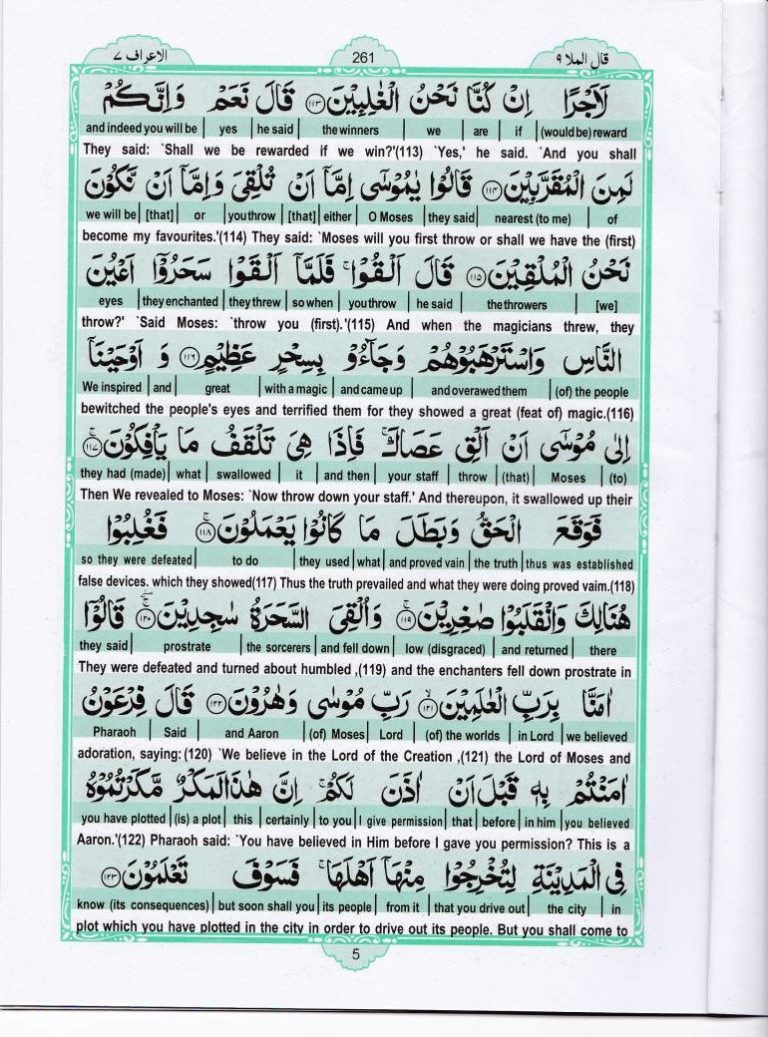 قال الملا ٩ 261 الاعراف ٧
لَاَجْرًا اِنْ كُنَّا نَحْنُ الْغٰلِبِيْنَ ۝١١٣ قَالَ نَعَمْ وَاِنَّكُمْ
and indeed you will be | yes | he said | the winners | we | are | if | (would be) reward
They said: `Shall we be rewarded if we win?'(113) `Yes,' he said. `And you shall
لَمِنَ الْمُقَرَّبِيْنَ ۝١١٤ قَالُوْا يٰمُوْسٰٓى اِمَّآ اَنْ تُلْقِيَ وَاِمَّآ اَنْ نَّكُوْنَ
we will be | [that] | or | you throw | [that] | either | O Moses | they said | nearest (to me) | of
become my favourites.'(114) They said: `Moses will you first throw or shall we have the (first)
نَحْنُ الْمُلْقِيْنَ ۝١١٥ قَالَ اَلْقُوْا ۚ فَلَمَّآ اَلْقَوْا سَحَرُوْٓا اَعْيُنَ
eyes | they enchanted | they threw | so when | you throw | he said | the throwers | [we]
throw?' `Said Moses: `throw you (first).'(115) And when the magicians threw, they
النَّاسِ وَاسْتَرْهَبُوْهُمْ وَجَآءُوْ بِسِحْرٍ عَظِيْمٍ ۝١١٦ وَ اَوْحَيْنَآ
We inspired | and | great | with a magic | and came up | and overawed them | (of) the people
bewitched the people's eyes and terrified them for they showed a great (feat of) magic.(116)
اِلٰى مُوْسٰٓى اَنْ اَلْقِ عَصَاكَ ۚ فَاِذَا هِيَ تَلْقَفُ مَا يَاْفِكُوْنَ ۝١١٧
they had (made) | what | swallowed | it | and then | your staff | throw | (that) | Moses | (to)
Then We revealed to Moses: `Now throw down your staff.' And thereupon, it swallowed up their
فَوَقَعَ الْحَقُّ وَبَطَلَ مَا كَانُوْا يَعْمَلُوْنَ ۝١١٨ فَغُلِبُوْا
so they were defeated | to do | they used | what | and proved vain | the truth | thus was established
false devices. which they showed(117) Thus the truth prevailed and what they were doing proved vaim.(118)
هُنَالِكَ وَانْقَلَبُوْا صٰغِرِيْنَ ۝١١٩ وَاُلْقِيَ السَّحَرَةُ سٰجِدِيْنَ ۝١٢٠ قَالُوْٓا
they said | prostrate | the sorcerers | and fell down | low (disgraced) | and returned | there
They were defeated and turned about humbled ,(119) and the enchanters fell down prostrate in
اٰمَنَّا بِرَبِّ الْعٰلَمِيْنَ ۝١٢١ رَبِّ مُوْسٰى وَهٰرُوْنَ ۝١٢٢ قَالَ فِرْعَوْنُ
Pharaoh | Said | and Aaron | (of) Moses | Lord | (of) the worlds | in Lord | we believed
adoration, saying: (120) `We believe in the Lord of the Creation ,(121) the Lord of Moses and
اٰمَنْتُمْ بِهٖ قَبْلَ اَنْ اٰذَنَ لَكُمْ ۚ اِنَّ هٰذَا لَمَكْرٌ مَّكَرْتُمُوْهُ
you have plotted | (is) a plot | this | certainly | to you | I give permission | that | before | in him | you believed
Aaron.'(122) Pharaoh said: `You have believed in Him before I gave you permission? This is a
فِي الْمَدِيْنَةِ لِتُخْرِجُوْا مِنْهَآ اَهْلَهَا ۚ فَسَوْفَ تَعْلَمُوْنَ ۝١٢٣
know (its consequences) | but soon shall you | its people | from it | that you drive out | the city | in
plot which you have plotted in the city in order to drive out its people. But you shall come to
5